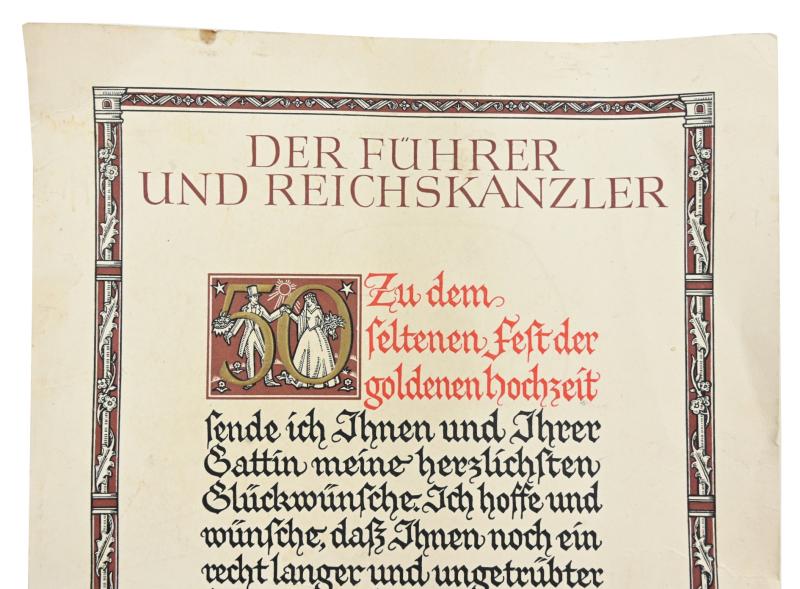 DER FÜHRER
UND REICHSKANZLER
50
Zu dem
seltenen Fest der
goldenen Hochzeit
sende ich Ihnen und Ihrer
Gattin meine herzlichsten
Glückwünsche. Ich hoffe und
wünsche, daß Ihnen noch ein
recht langer und ungetrübter